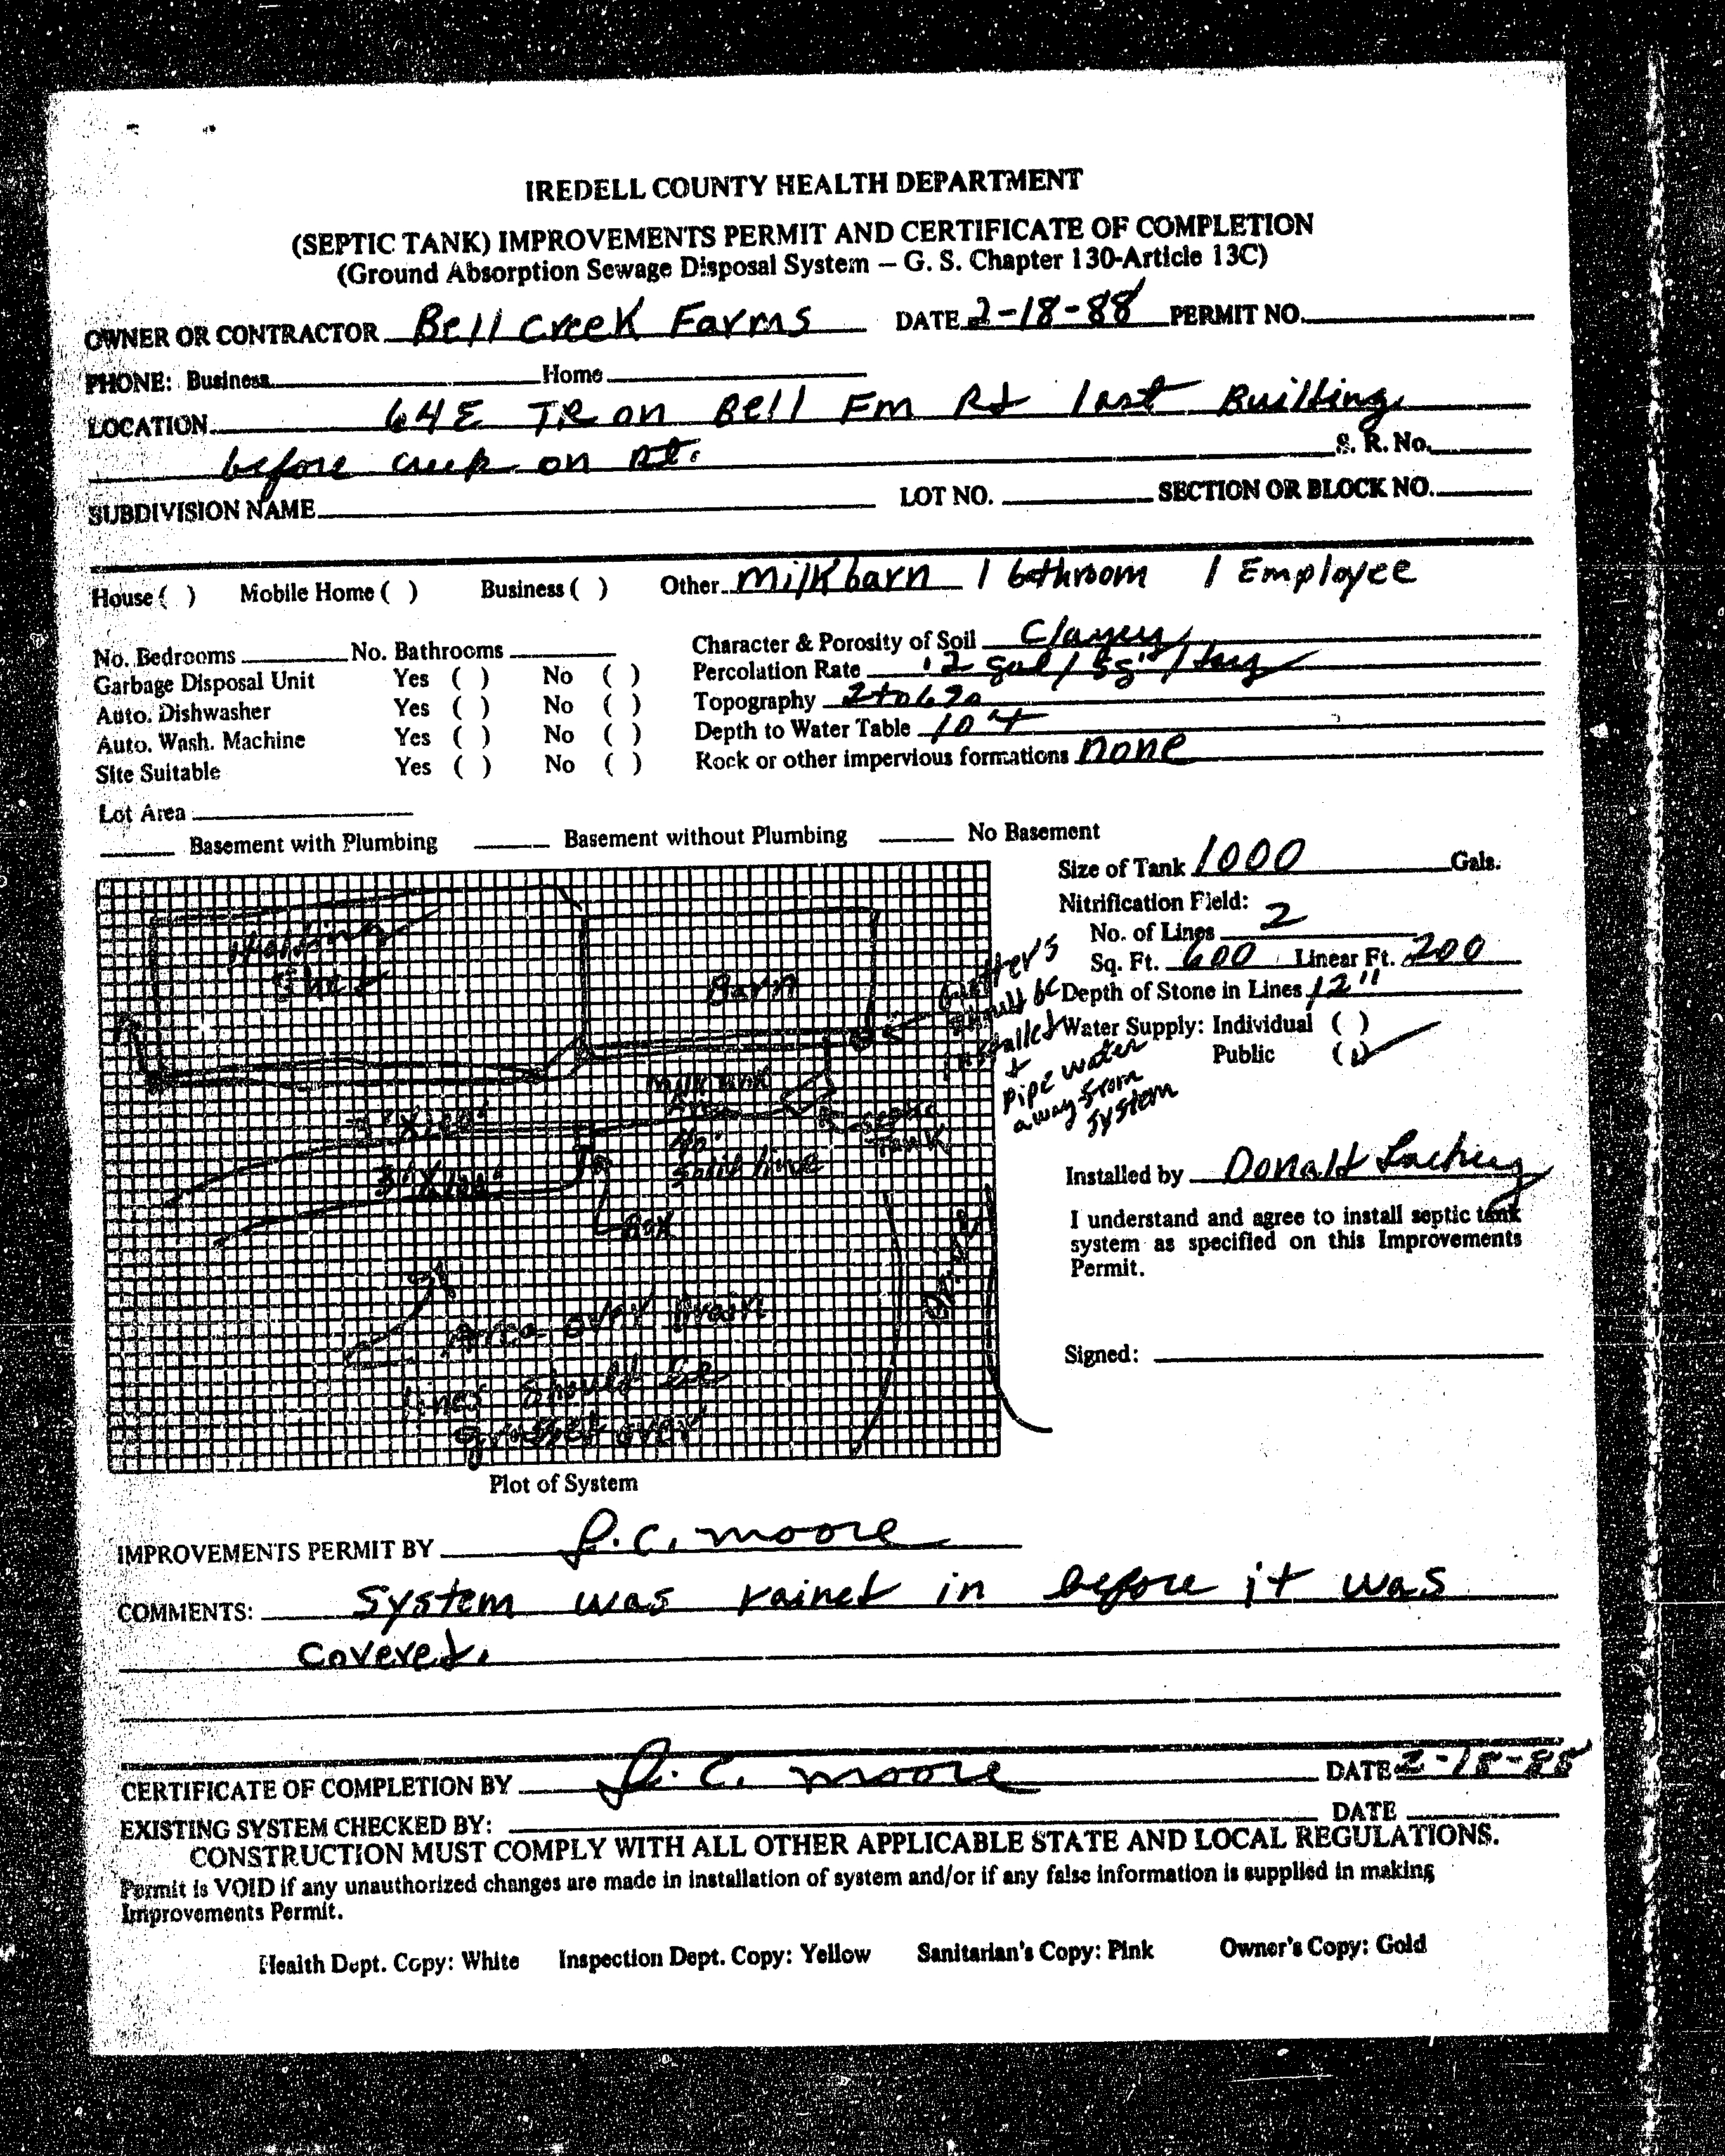 IREDELL COUNTY HEALTH DEPARTMENT
(SEPTIC TANK) IMPROVEMENTS PERMIT AND CERTIFICATE OF COMPLETION
(Ground Absorption Sewage Disposal System – G. S. Chapter 130-Article 13C)
OWNER OR CONTRACTOR Bell Creek Farms DATE 2-18-88 PERMIT NO.
PHONE: Business Home
LOCATION 64E TR on Bell Fm Rd last Building
before creek on Rt. S. R. No.
SUBDIVISION NAME LOT NO. SECTION OR BLOCK NO.
House ( ) Mobile Home ( ) Business ( ) Other milk barn 1 bathroom 1 Employee
No. Bedrooms No. Bathrooms
Garbage Disposal Unit Yes ( ) No ( )
Auto. Dishwasher Yes ( ) No ( )
Auto. Wash. Machine Yes ( ) No ( )
Site Suitable Yes ( ) No ( )
Character & Porosity of Soil Clayey
Percolation Rate .2 gal / sq' / day
Topography 2 to 6%
Depth to Water Table 10
Rock or other impervious formations none
Lot Area
Basement with Plumbing Basement without Plumbing No Basement
Size of Tank 1000 Gals.
Nitrification Field:
No. of Lines 2
Sq. Ft. 600 Linear Ft. 200
Depth of Stone in Lines 12"
Water Supply: Individual ( )
Public (✓)
Gutters
should be
installed
+
pipe water
away from
system
Holding
Shed
Barn
milk tank
septic
tank
3'X100'
3'X100'
solid line
Box
Drive
Area over drain
lines should be
grassed over
Installed by Donald Lackey
I understand and agree to install septic tank
system as specified on this Improvements
Permit.
Signed:
Plot of System
IMPROVEMENTS PERMIT BY J.C. Moore
COMMENTS: System was rained in before it was
covered.
CERTIFICATE OF COMPLETION BY J.C. Moore DATE 2-18-88
EXISTING SYSTEM CHECKED BY: DATE
CONSTRUCTION MUST COMPLY WITH ALL OTHER APPLICABLE STATE AND LOCAL REGULATIONS.
Permit is VOID if any unauthorized changes are made in installation of system and/or if any false information is supplied in making
Improvements Permit.
Health Dept. Copy: White Inspection Dept. Copy: Yellow Sanitarian's Copy: Pink Owner's Copy: Gold